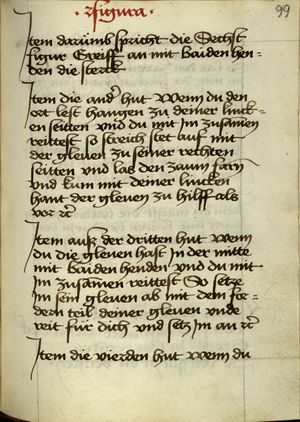 99
· 2figura ·
Item darumb spricht die Sechst
figur Greiff an mit baiden hen-
den die sterck
Item die and' hut Wenn du den
ort lest hangen zu deiner linck-
en seitten vnd du mit Im zusamen
reittest so streich stet auf mit
der gleuen zu seiner rechten
seitten vnd las den zaum farn
vnd kum mit deiner lincken
hant der gleuen zu hilff als
vor rc
Item auß der dritten hut Wenn
du die gleuen hast In der mitte
mit baiden henden vnd du mit
Im zusamen reittest So setze
Im sein gleuen ab mit dem for-
dern teil deiner gleuen vnde
reit für dich vnd setz Im an rc
Item die vierden hut wenn du